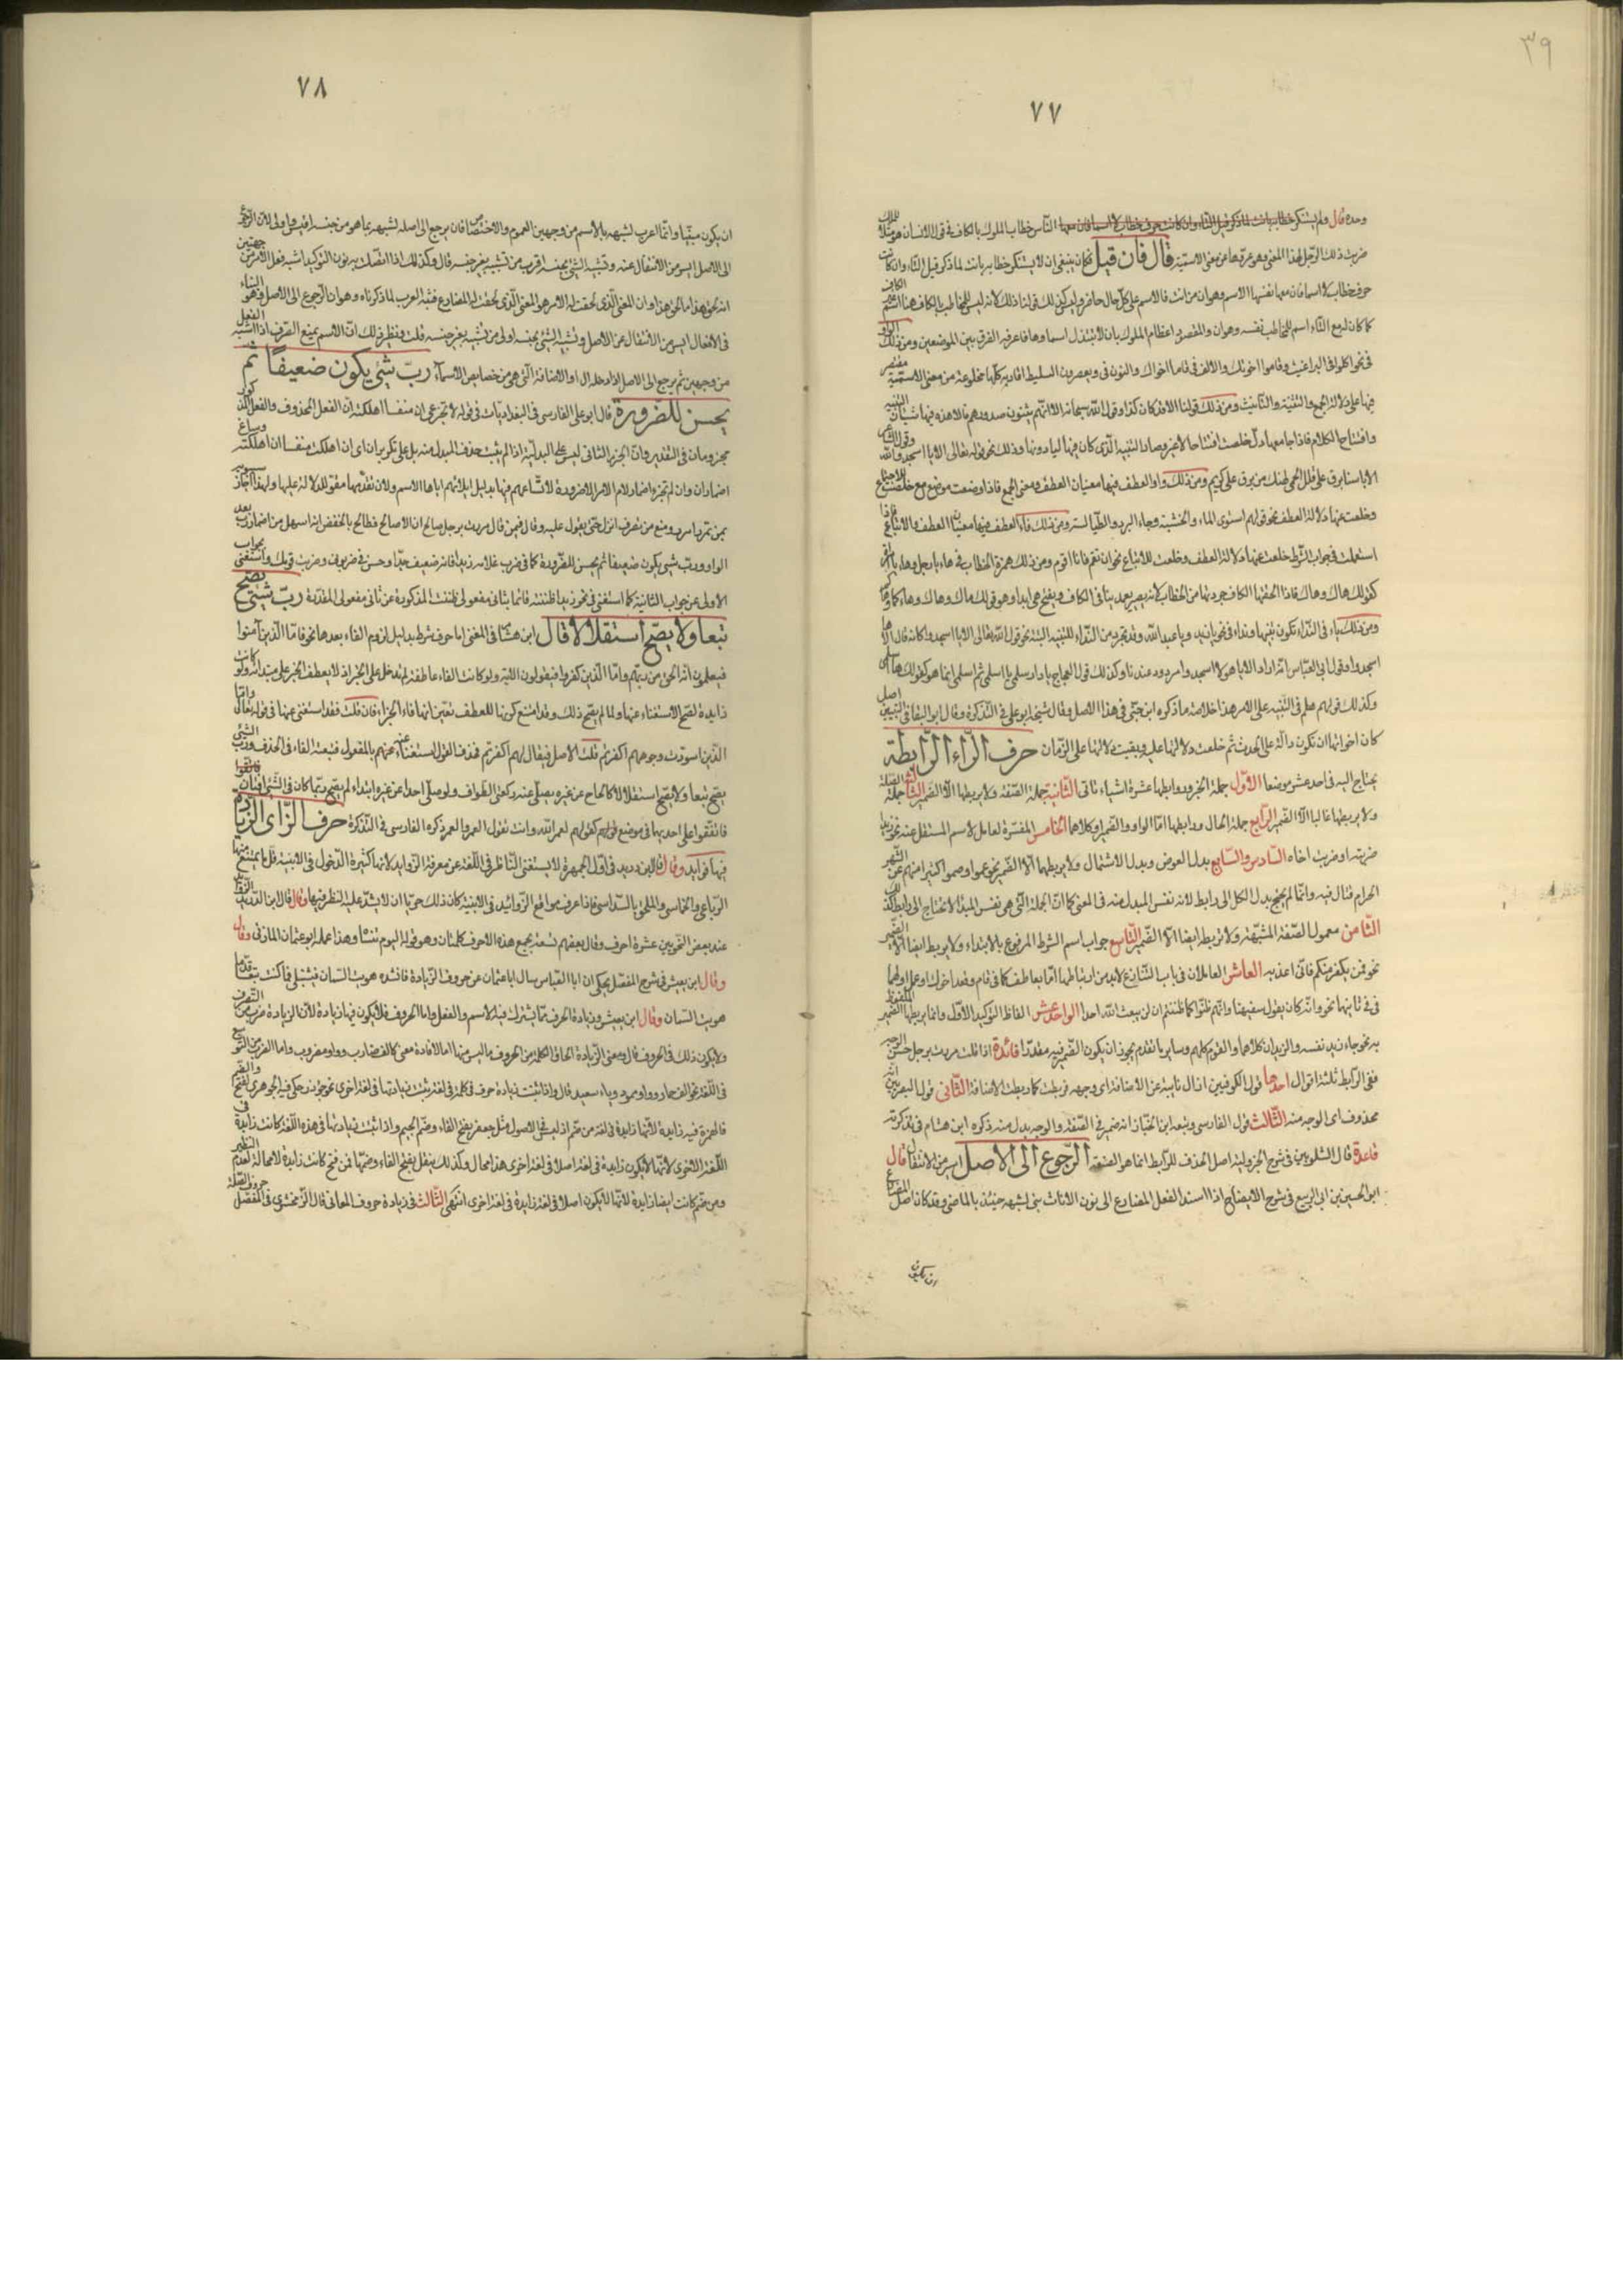 ٣٩
٧٧
وحده قال ولم يستنكر خطابه بانت لما ذكر قبل التاء وان كانت حرف خطاب لا اسما فان معها الناس خطاب الملوك بالكاف في قول الانسان هو مثلا للملك
ضربت ذلك الرجل لهذا المعنى وهو عرقها عن معنى الاسمية قال فان قيل فكان ينبغي ان لا يستنكر خطابه بانت لما ذكر قبل التاء وان كانت
حرف خطاب لا اسما فان معها نفسها الاسم وهو ان من انت فالاسم على كل حال حاضر وليس كذلك قولنا ذلك لانه ليس للمخاطب بالكاف هنا اسم
كما كان له مع التاء اسم للمخاطب نفسه وهو ان والمقصد اعظام الملوك بان لا تبتذل اسماوها فاعرف الفرق بين الموضعين ومن ذلك الواو
في نحو اكلوني البراغيث وقاموا اخوتك والالف في قاما اخواك والنون في ويعصرن السليط اقاربه كلها مخلوعة من معنى الاسمية مقتصر
فيها على دلالة الجمع والتثنية والتانيث ومن ذلك قولنا الا قد كان كذا وقول الله سبحانه الا انهم يثنون صدورهم فالا هذه فيها شيان التنبيه
وافتتاح الكلام فاذا جاء معها يا خلصت افتتاحا لا غير وصار التنبيه الذي كان فيها ليا دونها وذلك نحو قوله تعالى الا يا اسجدوا لله وقول الشاعر
الا يا سنا برق على قلل الحمى لهنك من برق على كريم ومن ذلك واو العطف فيها معنيان العطف ومعنى الجمع فاذا وضعت موضع مع خلصت للاجتماع
وخلعت عنها دلالة العطف نحو قولهم استوى الماء والخشبة وجاء البرد والطيالسة ومن ذلك فاء العطف فيها معنيان العطف والاتباع فاذا
استعملت في جواب الشرط خلعت عنها دلالة العطف وخلصت للاتباع نحو ان تقم فانا اقوم ومن ذلك همزة الخطاب في هاء يا رجل وهاء يا امراة
كقولك هاك وهاك فاذا الحقتها الكاف جردتها من الخطاب لانه يصير بعدها في الكاف ويفتح هي ابدا وهو قولك هاءك وهاءك وهاءكما وهاءكم
ومن ذلك ياء في النداء تكون تنبيها ونداء في نحو يا زيد ويا عبد الله وقد تجردت من النداء للتنبيه البتة نحو قول الله تعالى الا يا اسجدوا كانه قال الا ها
اسجدوا وقول ابي العباس انه اراد الا يا هولاء اسجدوا مردود عندنا وكذلك قول العجاج يا دار سلمى يا اسلمي ثم اسلمي انما هو كقولك ها اسلمي
وكذلك قولهم هلم في التنبيه على الامر هذا خلاصة ما ذكره ابن جني في هذا الاصل وقال شيخه ابو علي في التذكرة وقال ابو البقاء في التبيين اصل
كان اخواتها ان تكون دالة على الحدث ثم خلعت دلالتها عليه وبقيت دلالتها على الزمان حرف الراء الرابطة
يحتاج اليه في احد عشر موضعا الاول جملة الخبر وروابطها عشرة اشياء تاتي الثانية جملة الصفة ولا يربطها الا الضمير الثالث جملة الصلة
ولا يربطها غالبا الا الضمير الرابع جملة الحال ورابطها اما الواو والضمير او كلاهما الخامس المفسرة لعامل الاسم المشتغل عنه نحو زيدا
ضربته او ضربت اخاه السادس والسابع بدل البعض وبدل الاشتمال ولا يربطهما الا الضمير نحو عموا وصموا كثير منهم عن الشهر
الحرام قتال فيه وانما لم يحتج بدل الكل الى رابط لانه نفس المبدل منه في المعنى كما ان الجملة التي هي نفس المبتدا لا تحتاج الى رابط لذلك
الثامن معمول الصفة المشبهة ولا يربطه ايضا الا الضمير التاسع جواب اسم الشرط المرفوع بالابتداء ولا يربطه ايضا الا الضمير
نحو فمن يكفر منكم فاني اعذبه العاشر العاملان في باب التنازع لابد من ارتباطهما اما بعاطف كما في قام وقعد اخواك او عمل اولهما
في ثانيهما نحو وانه كان يقول سفيهنا وانهم ظنوا كما ظننتم ان لن يبعث الله احدا الحادي عشر الفاظ التوكيد الاول وانما يربطها الضمير الملفوظ
به نحو جاء زيد نفسه والزيدان كلاهما والقوم كلهم وساير ما تقدم يجوز ان يكون الضمير فيه مقدرا فائدة اذا قلت مررت برجل حسن الوجه
ففي الرابط ثلثة اقوال احدها قول الكوفيين ان ال نايبة عن الاضافة اي وجهه فربطت كما ربطت الاضافة الثاني قول البصريين انه
محذوف اي الوجه منه الثالث قول الفارسي وتبعه ابن الخباز انه ضمير في الصفة والوجه بدل منه ذكره ابن هشام في تذكرته
قاعدة قال الشلوبين في شرح الجزولية اصل الحذف للرابط انما هو الصفة الرجوع الى الاصل ايسر من الانتقال قال
ابو الحسين بن ابي الربيع في شرح الايضاح اذا اسند الفعل المضارع الى نون الاناث بني لشبهه حينئذ بالماضي وقد كان اصل المضارع
ان يكون
٧٨
ان يكون مبنيا وانما اعرب لشبهه بالاسم من وجهين العموم والاختصاص فان يرجع الى اصله لشبهه بما هو من جنسه اقيس واولى لان الرجوع
الى الاصل ايسر من الانتقال عنه وتشبيه الشئ بجنسه اقرب من تشبيهه بغير جنسه قال وكذلك اذا اتصلت به نون التوكيد اشبه فعل الامر من جهتين
انه نحو هذا كما نحو هذا وان المعنى الذي لحقت له الامر هو المعنى الذي لحقت له المضارع فغلب العرب لما ذكرناه وهو ان الرجوع الى الاصل وهو البناء
في الافعال ايسر من الانتقال عن الاصل وتشبيه الشئ بجنسه اولى من تشبيهه بغير جنسه قلت ونظير ذلك ان الاسم يمنع الصرف اذا اشبه الفعل
من وجهين ثم يرجع الى الاصل اذا دخله ال او الاضافة التي هي من خصايص الاسماء رب شئ يكون ضعيفا ثم
يحسن للضرورة قال ابو علي الفارسي في البغداديات في قوله لا تجزعي ان منفسا اهلكته ان الفعل المحذوف والفعل المذكور
مجزومان في التقدير وان الجزم الثاني ليس على البدلية اذ لم يثبت حذف المبدل منه بل على تكرير ان اي ان اهلكت منفسا ان اهلكته وساغ
اضمار ان وان لم تجز اضمار لام الامر الا ضرورة لاتساعهم فيها بدليل ايلائهم اياها الاسم ولان تقدمها مقو للدلالة عليها ولهذا اجاز سيبويه
بمن تمرر امرر ومنع من تضرب انزل حتى يقول عليه وقال فيمن قال مررت برجل صالح ان لا صالح فطالح بالخفض انه اسهل من اضمار رب بعد
الواو ورب شئ يكون ضعيفا ثم يحسن للضرورة كما في ضرب غلامه زيدا فانه ضعيف جدا وحسن في ضربوني وضربت قومك واستغنى بجواب
الاولى عن جواب الثانية كما استغنى في نحو زيدا ظننته قائما بثاني مفعولي ظننت المذكورة عن ثاني مفعولي المقدرة رب شئ يصح
تبعا ولا يصح استقلالا قال ابن هشام في المغنى اما حرف شرط بدليل لزوم الفاء بعدها نحو فاما الذين آمنوا
فيعلمون انه الحق من ربهم واما الذين كفروا فيقولون الاية ولو كانت الفاء عاطفة لم تدخل على الخبر اذ لا يعطف الخبر على مبتدائه ولو كانت
زايدة لصح الاستغناء عنها ولما لم يصح ذلك وقد امتنع كونها للعطف تعين انها فاء الجزاء فان قلت فقد استغنى عنها في قوله تعالى واما
الذين اسودت وجوههم اكفرتم قلت الاصل فيقال لهم اكفرتم فحذف القول استغناء عنه بالمقول فتبعته الفاء في الحذف ورب الشئ
يصح تبعا ولا يصح استقلالا كالحاج عن غيره يصلي عنه ركعتي الطواف ولو صلى احد عن غيره ابتداء لم يصح ربما كان في الشئ لغتان
فاتفقوا على احديهما في موضع كقولهم لعمر الله وانت تقول العمر والعمر ذكره الفارسي في التذكرة حرف الزاي الزيادة
فيها فوايد وقال ابن دريد في اول الجمهرة لا يستغني الناظر في اللغة عن معرفة الزوايد لانها كثيرة الدخول في الابنية قل ما يمتنع منها
الرباعي والخماسي والملحق بالسداسي فاذا عرف مواقع الزوائد في الابنية كان ذلك حريا ان لا يشذ عليه النظر فيها وقال الزوايد
عند بعض النحويين عشرة احرف وقال بعضهم تسعة يجمع هذه الاحرف كلمتان وهو قوله اليوم تنساه وهذا عمله ابو عثمان المازني وقال
وقال ابن يعيش في شرح المفصل يحكى ان ابا العباس سال ابا عثمان عن حروف الزيادة فانشده هويت السمان فشيبنني وما كنت قدما
هويت السمان وقال ابن يعيش وزيادة الحرف مما يشترك فيه الاسم والفعل واما الحروف فلا يكون فيها زيادة لان الزيادة ضرب من التصرف
ولا يكون ذلك في الحروف قال ومعنى الزيادة الحاق الكلمة من الحروف ما ليس منها اما لافادة معنى كالف ضارب وواو مضروب واما لضرب من التوسع
في اللغة نحو الف حمار وواو عمود وياء سعيد قال واذا ثبتت زيادة حرف في كلمة في لغة ثبتت زيادتها في لغة اخرى نحو جؤذر حكى فيه الجوهري الفتح والضم
فالهمزة فيه زايدة لانها زايدة في لغة من ضم اذ ليس في الاصول مثل جعفر بفتح الفاء وضم الجيم واذا ثبتت زيادتها في هذه اللغة كانت زايدة في
اللغة الاخرى لانها لا يكون زايدة في لغة اصلا في لغة اخرى هذا محال وكذلك تتفل بفتح الفاء وضمها فمن فتح كانت زايدة لا محالة لعدم النظير
ومن ضم كانت ايضا زايدة لانها لا تكون اصلا في لغة زايدة في لغة اخرى انتهى الثالث في زيادة حروف المعاني قال الزمخشري في المفصل حروف الصلة